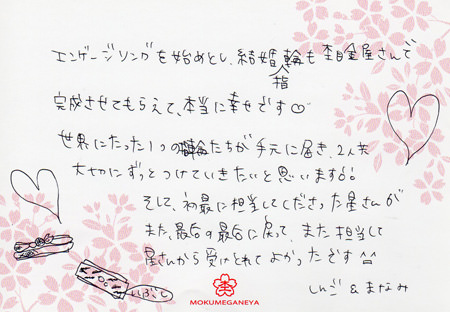 エンゲージリングを始めとし、結婚指輪も杢目金屋さんで
完成させてもらえて、本当に幸せです♡
世界にたった1つの輪たちが手元に届き、2人共
大切にずっとつけていきたいと思います!!
そして、初最に担当してくださった星さんが
また、最后の最后に戻って、また担当して
星さんから受けとれてよかったです^^
しんご & まなみ
いぶし
MOKUMEGANEYA